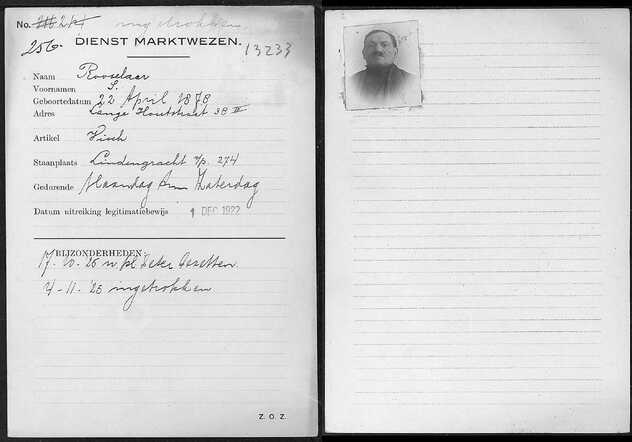 No. 284 ingetrokken
256. DIENST MARKTWEZEN. 13233
Naam Rooselaar
Voornamen S.
Geboortedatum 22 April 1878
Adres Lange Houtstraat 38 II
Artikel Visch
Staanplaats Lindengracht v/p. 274
Gedurende Maandag t/m Zaterdag
Datum uitreiking legitimatiebewijs 1 DEC 1922
BIJZONDERHEDEN:
17-10-25 v. pl.
4-11-'25 ingetrokken
Z. O. Z.